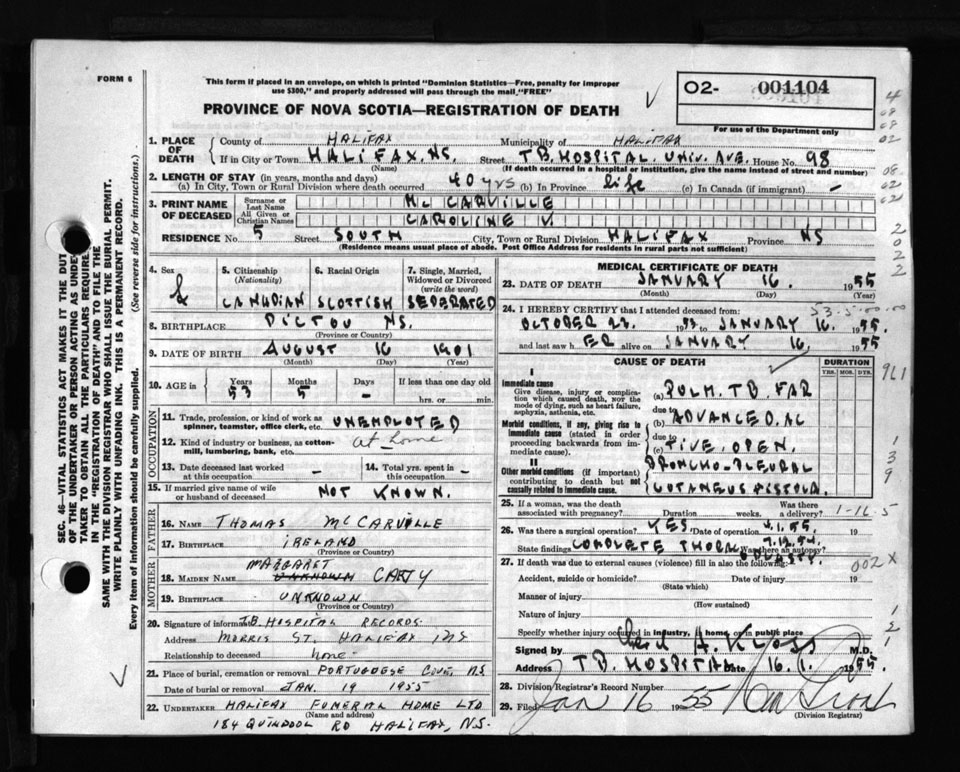 FORM 6
This form if placed in an envelope, on which is printed "Dominion Statistics—Free, penalty for improper
use $300," and properly addressed will pass through the mail "FREE"
PROVINCE OF NOVA SCOTIA—REGISTRATION OF DEATH
O2- 001104
For use of the Department only
SEC. 46—VITAL STATISTICS ACT MAKES IT THE DUT
OF THE UNDERTAKER OR PERSON ACTING AS UNDER
TAKER TO OBTAIN ALL THE PARTICULARS REQUIRE
IN THE "REGISTRATION OF DEATH" AND TO FILE THE
SAME WITH THE DIVISION REGISTRAR WHO SHALL ISSUE THE BURIAL PERMIT.
WRITE PLAINLY WITH UNFADING INK. THIS IS A PERMANENT RECORD.
Every item of information should be carefully supplied. (See reverse side for instructions.)
1. PLACE OF DEATH
County of HALIFAX Municipality of HALIFAX
If in City or Town HALIFAX, NS. Street TB. HOSPITAL. UNIV. AVE. House No. 98
(Name) (If death occurred in a hospital or institution, give the name instead of street and number)
2. LENGTH OF STAY (in years, months and days)
(a) In City, Town or Rural Division where death occurred 40 yrs (b) In Province life (c) In Canada (if immigrant) -
3. PRINT NAME OF DECEASED
Surname or Last Name Mc CARVILLE
All Given or Christian Names CAROLINE V.
RESIDENCE No. 5 Street SOUTH City, Town or Rural Division HALIFAX Province NS
(Residence means usual place of abode. Post Office Address for residents in rural parts not sufficient)
4. Sex
f
5. Citizenship (Nationality)
CANADIAN
6. Racial Origin
SCOTTISH
7. Single, Married, Widowed or Divorced (write the word)
SEPERATED
8. BIRTHPLACE PICTOU NS.
(Province or Country)
9. DATE OF BIRTH AUGUST 16 1901
(Month) (Day) (Year)
10. AGE in Years Months Days If less than one day old
53 5 - hrs. or min.
OCCUPATION
11. Trade, profession, or kind of work as spinner, teamster, office clerk, etc. UNEMPLOYED
12. Kind of industry or business, as cotton-mill, lumbering, bank, etc. at home
13. Date deceased last worked at this occupation -
14. Total yrs. spent in this occupation -
15. If married give name of wife or husband of deceased NOT KNOWN.
FATHER
16. NAME THOMAS MCCARVILLE
17. BIRTHPLACE IRELAND
(Province or Country)
MOTHER
18. MAIDEN NAME MARGARET UNKNOWN CARTY
19. BIRTHPLACE UNKNOWN
(Province or Country)
20. Signature of informant T.B. HOSPITAL RECORDS.
Address MORRIS ST. HALIFAX NS
Relationship to deceased none
21. Place of burial, cremation or removal PORTUGUESE COVE, N.S
Date of burial or removal JAN. 19 1955
22. UNDERTAKER HALIFAX FUNERAL HOME LTD
(Name and address)
184 QUINPOOL RD HALIFAX, N.S.
MEDICAL CERTIFICATE OF DEATH
23. DATE OF DEATH JANUARY 16 1955
(Month) (Day) (Year)
24. I HEREBY CERTIFY that I attended deceased from:
53-5-00-00
OCTOBER 19 to JANUARY 16. 1955.
and last saw h ER alive on JANUARY 16, 1955
CAUSE OF DEATH
DURATION
YRS. MOS. DYS.
I
Immediate cause
Give disease, injury or complication which caused death, not the mode of dying, such as heart failure, asphyxia, asthenia, etc.
(a) PULM. TB FAR
due to
Morbid conditions, if any, giving rise to immediate cause (stated in order proceeding backwards from immediate cause).
(b) ADVANCED. AC
due to
(c) TIVE. OPEN.
II
Other morbid conditions (if important) contributing to death but not causally related to immediate cause.
BRONCHO-PLEURAL
CUTANEUS FISTULA.
961
1
3
9
25. If a woman, was the death associated with pregnancy? Duration weeks. Was there a delivery? 1-16-5
26. Was there a surgical operation? YES Date of operation 4.1.55. 19
7.12.54.
State findings COMPLETE THORACOPLASTY. Was there an autopsy?
27. If death was due to external causes (violence) fill in also the following: 002 X
Accident, suicide or homicide? Date of injury 19
(State which)
Manner of injury
(How sustained)
Nature of injury
Specify whether injury occurred in industry, home, or in public place
Signed by A. M.D.
Address TB. HOSPITAL Date 16. 1. 1955.
28. Division Registrar's Record Number
29. Filed Jan 16 1955
(Division Registrar)